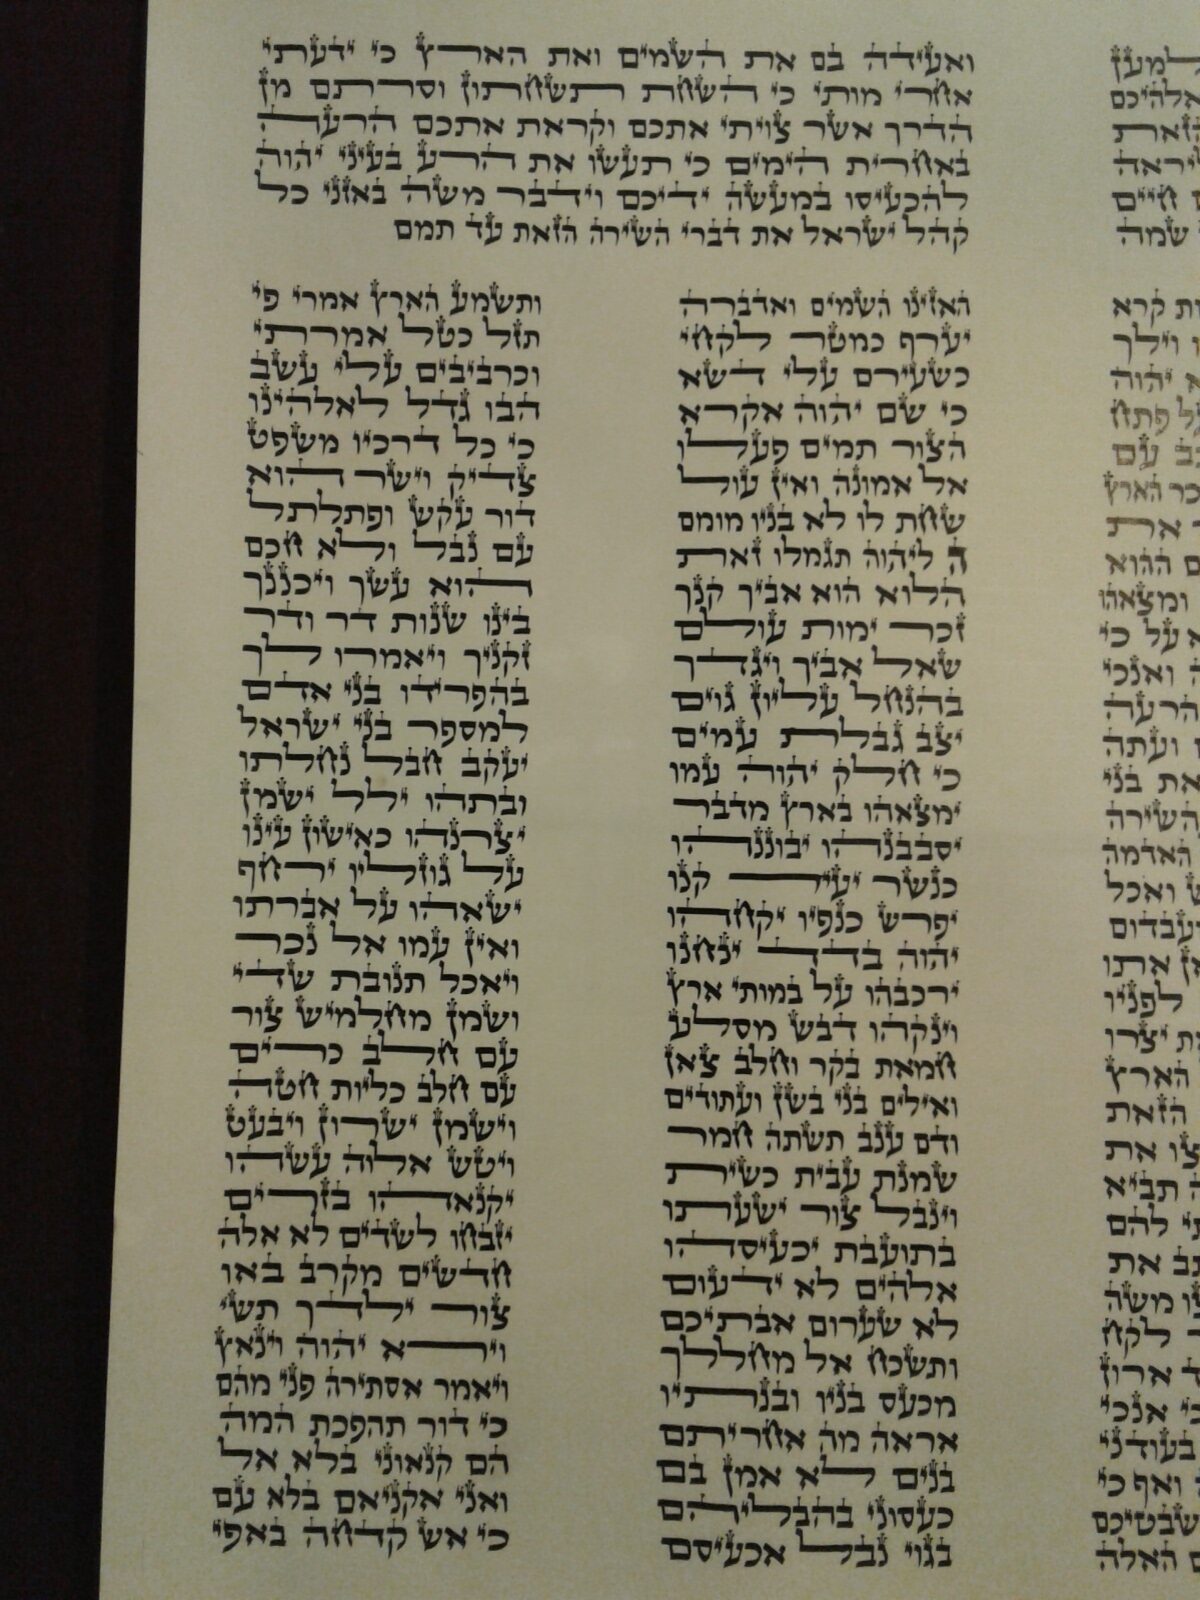 למען
אלהיכם
הזאת
ליראה
חיים
שמה
קרא
וילך
יהוה
פתח
עם
הארץ
את
ההוא
ומצאהו
על כי
ואנכי
הרעה
ועתה
את בני
השירה
האדמה
ואכל
ועבדום
אתו
לפניו
יצרו
הארץ
הזאת
את
תביא
להם
את
משה
לקח
ארון
אנכי
בעודני
ואף כי
שבטיכם
האלה
ואעידה בם את השמים ואת הארץ כי ידעתי
אחרי מותי כי השחת תשחתון וסרתם מן
הדרך אשר צויתי אתכם וקראת אתכם הרעה
באחרית הימים כי תעשו את הרע בעיני יהוה
להכעיסו במעשה ידיכם וידבר משה באזני כל
קהל ישראל את דברי השירה הזאת עד תמם
האזינו השמים ואדברה ותשמע הארץ אמרי פי
יערף כמטר לקחי תזל כטל אמרתי
כשעירם עלי דשא וכרביבים עלי עשב
כי שם יהוה אקרא הבו גדל לאלהינו
הצור תמים פעלו כי כל דרכיו משפט
אל אמונה ואין עול צדיק וישר הוא
שחת לו לא בניו מומם דור עקש ופתלתל
ה ליהוה תגמלו זאת עם נבל ולא חכם
הלוא הוא אביך קנך הוא עשך ויכננך
זכר ימות עולם בינו שנות דר ודר
שאל אביך ויגדך זקניך ויאמרו לך
בהנחל עליון גוים בהפרידו בני אדם
יצב גבלת עמים למספר בני ישראל
כי חלק יהוה עמו יעקב חבל נחלתו
ימצאהו בארץ מדבר ובתהו ילל ישמן
יסבבנהו יבוננהו יצרנהו כאישון עינו
כנשר יעיר קנו על גוזליו ירחף
יפרש כנפיו יקחהו ישאהו על אברתו
יהוה בדד ינחנו ואין עמו אל נכר
ירכבהו על במותי ארץ ויאכל תנובת שדי
וינקהו דבש מסלע ושמן מחלמיש צור
חמאת בקר וחלב צאן עם חלב כרים
ואילים בני בשן ועתודים עם חלב כליות חטה
ודם ענב תשתה חמר וישמן ישרון ויבעט
שמנת עבית כשית ויטש אלוה עשהו
וינבל צור ישעתו יקנאהו בזרים
בתועבת יכעיסהו יזבחו לשדים לא אלה
אלהים לא ידעום חדשים מקרב באו
לא שערום אבתיכם צור ילדך תשי
ותשכח אל מחללך וירא יהוה וינאץ
מכעס בניו ובנתיו ויאמר אסתירה פני מהם
אראה מה אחריתם כי דור תהפכת המה
בנים לא אמן בם הם קנאוני בלא אל
כעסוני בהבליהם ואני אקניאם בלא עם
בגוי נבל אכעיסם כי אש קדחה באפי